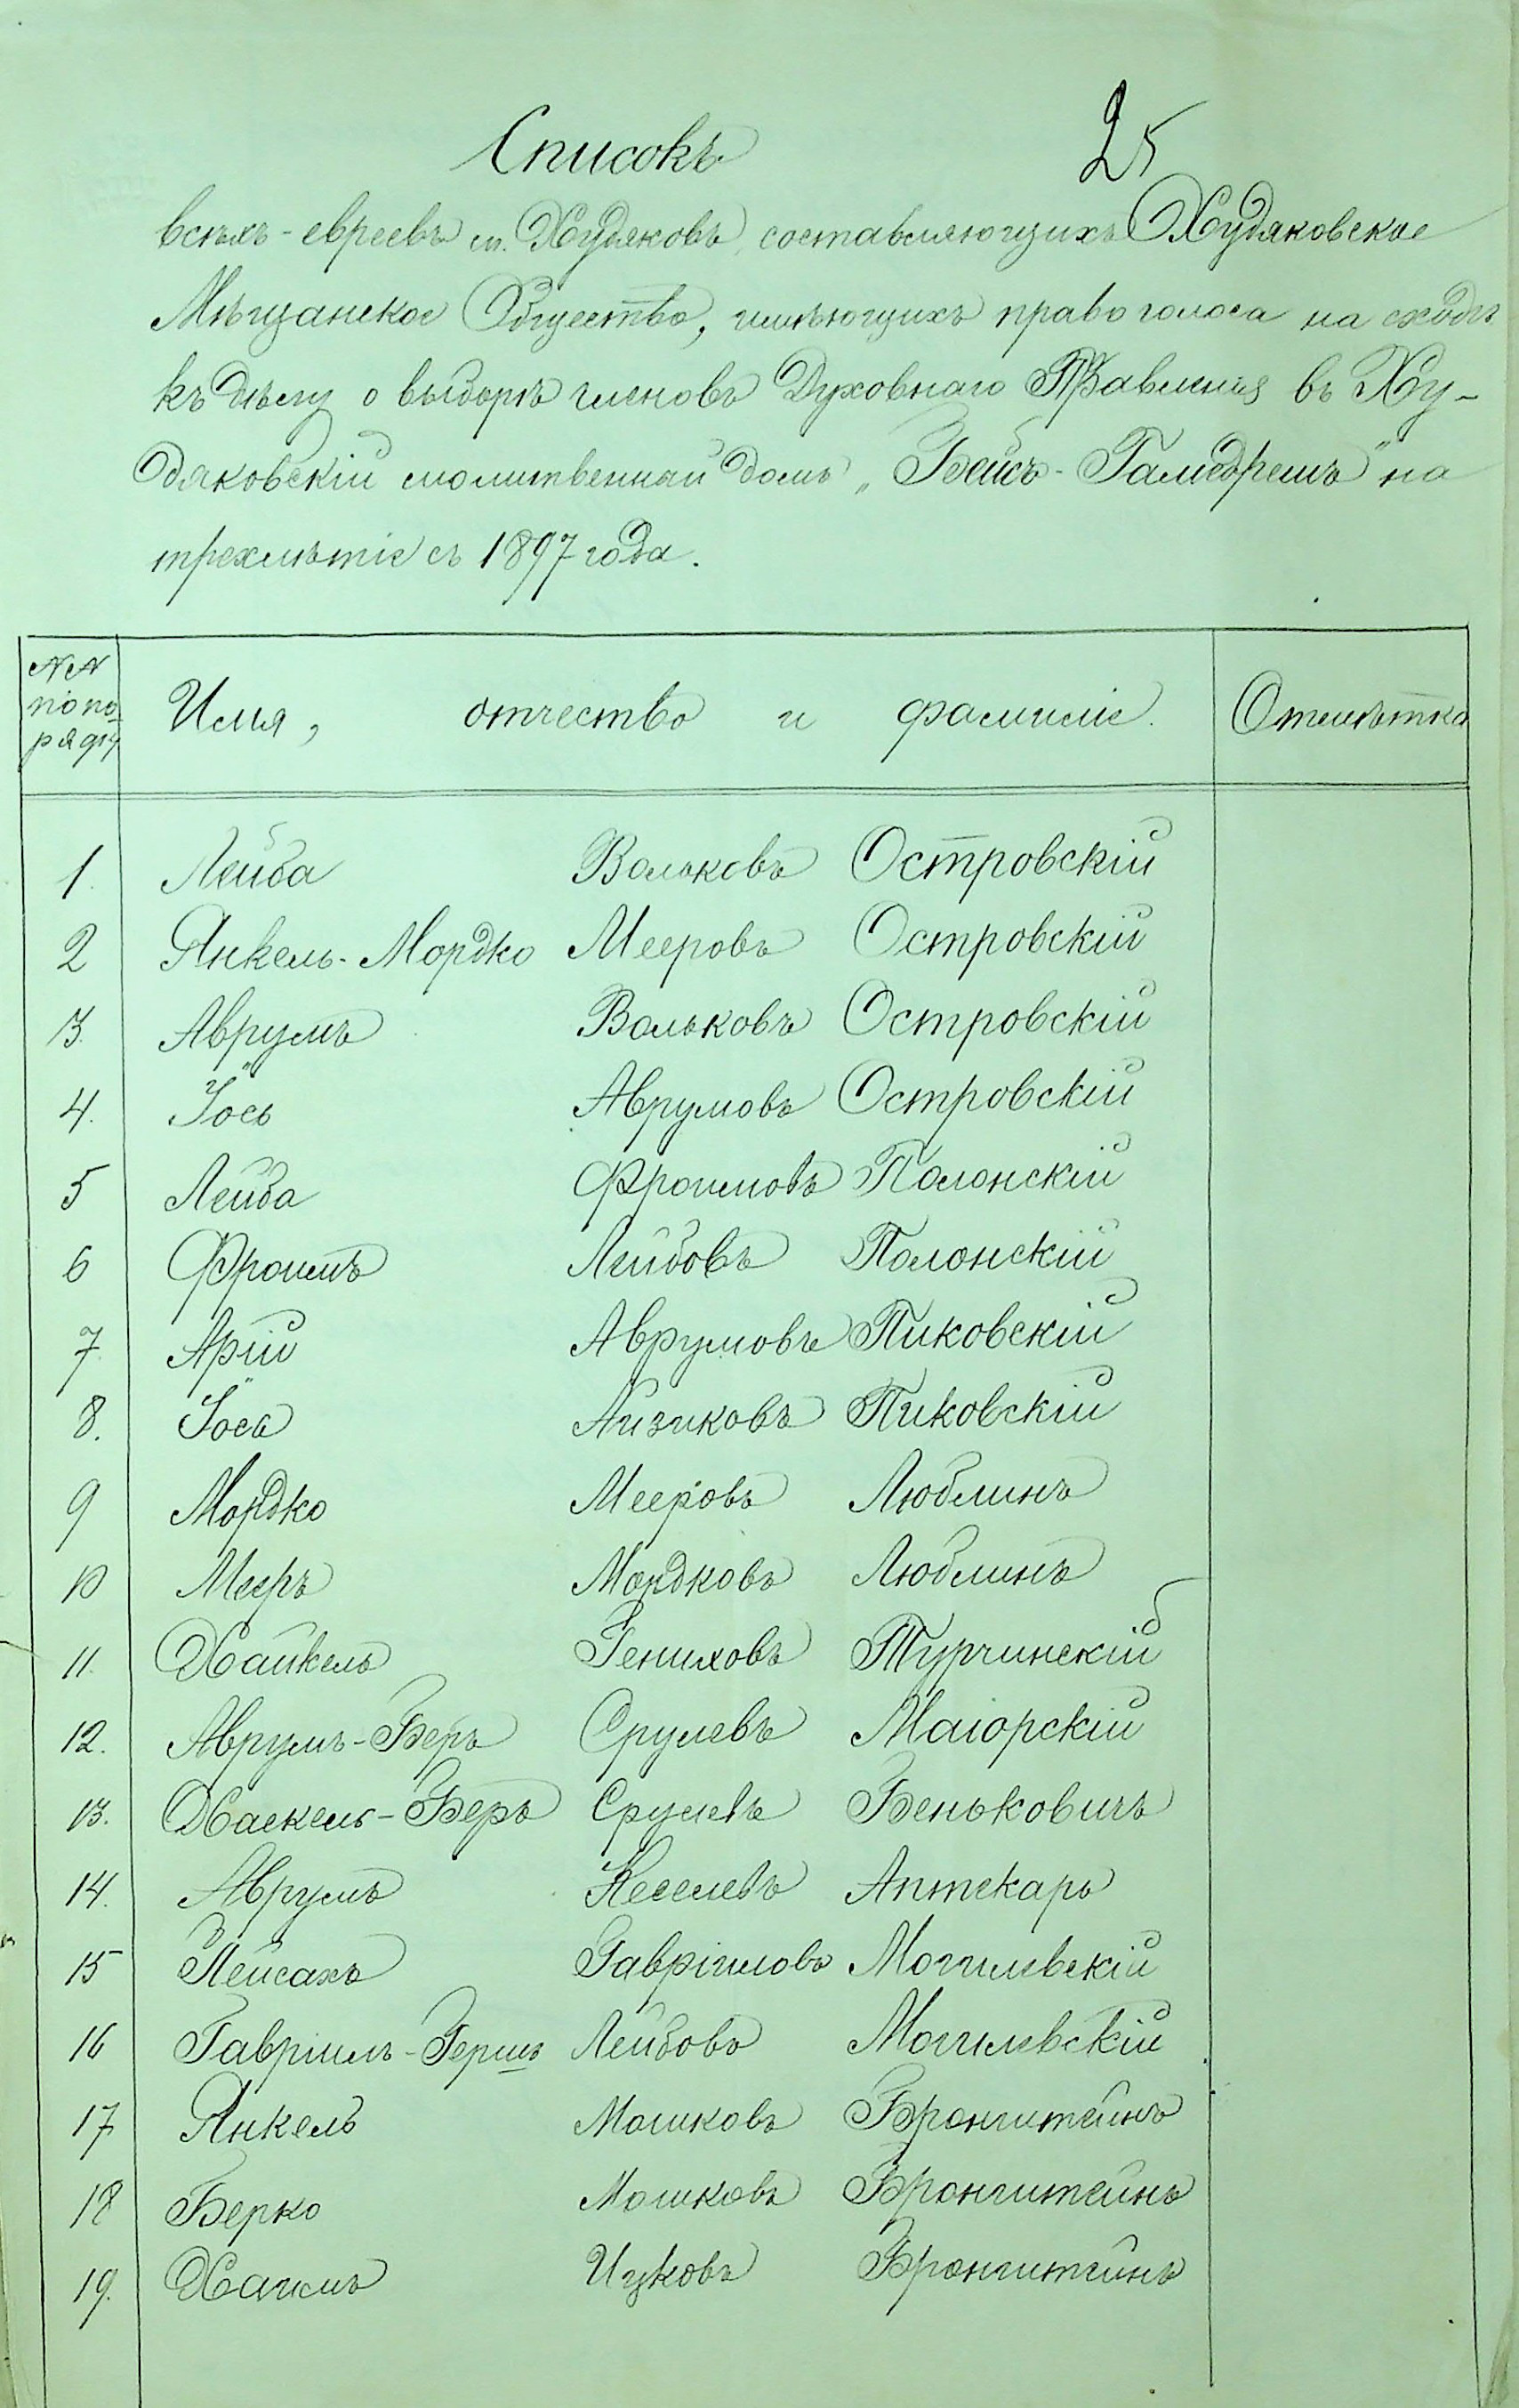 Списокъ
25
всѣхъ-евреевъ м. Худяковъ, составляющихъ Худяковское
Мѣщанское Общество, имѣющихъ право голоса на сходѣ
къ дѣлу о выборѣ членовъ Духовнаго Правленія въ Ху-
дяковскій молитвенный домъ „Бейсъ-Гамедрешъ" на
трехлѣтіе съ 1897 года.
NN по по-рядку Имя, отчество и фамиліе. Отмѣтка
1. Лейба Вольковъ Островскій
2 Янкель-Мордко Мееровъ Островскій
3. Аврумъ Вольковъ Островскій
4. Іось Аврумовъ Островскій
5 Лейба Фроимовъ Полонскій
6 Фроимъ Лейбовъ Полонскій
7. Арій Аврумовъ Пиковскій
8. Іось Айзиковъ Пиковскій
9 Мордко Мееровъ Люблинъ
10 Мееръ Мордковъ Люблинъ
11. Хайкель Гениховъ Турчинскій
12. Аврумъ-Беръ Срулевъ Маіорскій
13. Хаскель-Беръ Срулевъ Беньковичъ
14. Аврумъ Кеселевъ Аптекарь
15 Пейсахъ Гавріиловъ Могилевскій
16 Гавріилъ-Гершъ Лейбовъ Могилевскій
17 Янкель Мошковъ Бронштейнъ
18 Берко Мошковъ Бронштейнъ
19. Хаимъ Ицковъ Бронштейнъ